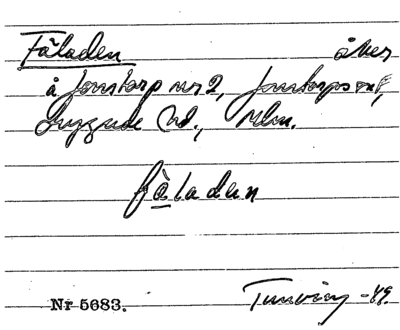 Fäladen åker
å Jonstorp nr 2, Jonstorps sn,
Luggude hd., Mlm.
fàladen
Nr 5683. Tunving -49.